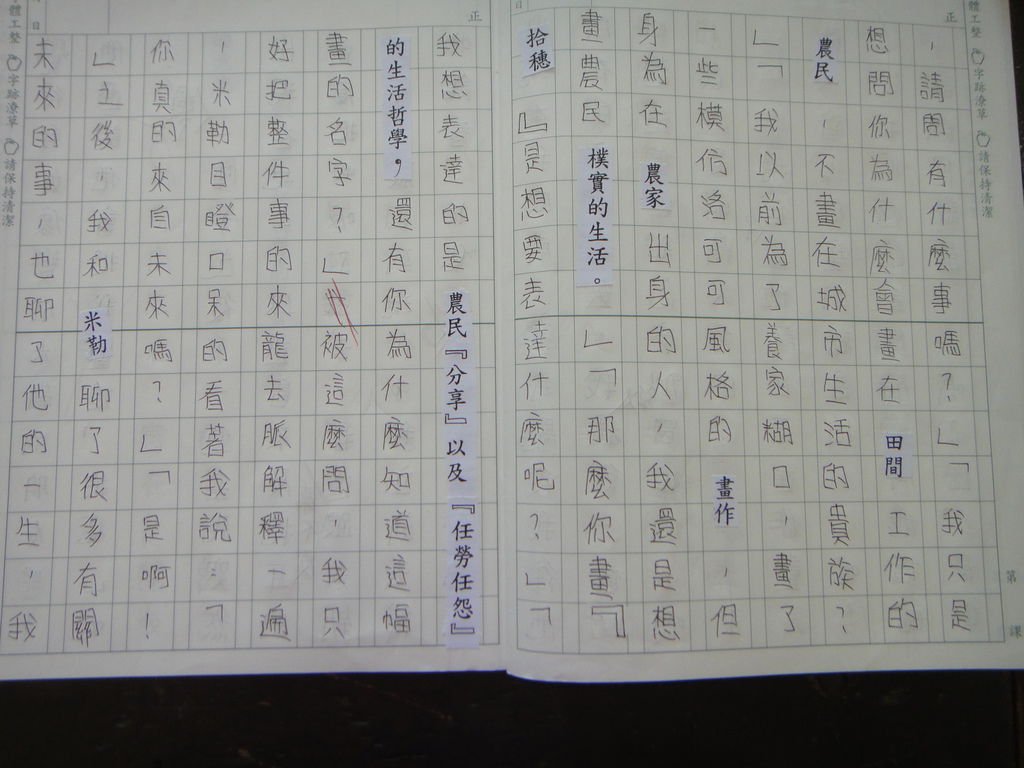 正
體工整 字跡潦草 請保持清潔
第 課
，請問有什麼事嗎？」「我只是
想問你為什麼會畫在田間工作的
農民，不畫在城市生活的貴族？
」「我以前為了養家糊口，畫了
一些模仿洛可可風格的畫作，但
身為在農家出身的人，我還是想
畫農民樸實的生活。」「那麼你畫『
拾穗』是想要表達什麼呢？」「
日
正
我想表達的是農民『分享』以及『任勞任怨』
的生活哲學，還有你為什麼知道這幅
畫的名字？」被這麼問，我只
好把整件事的來龍去脈解釋一遍
，米勒目瞪口呆的看著我說：「
你真的來自未來嗎？」「是啊！
」之後我和米勒聊了很多有關
未來的事，也聊了他的一生，我
日
體工整 字跡潦草 請保持清潔